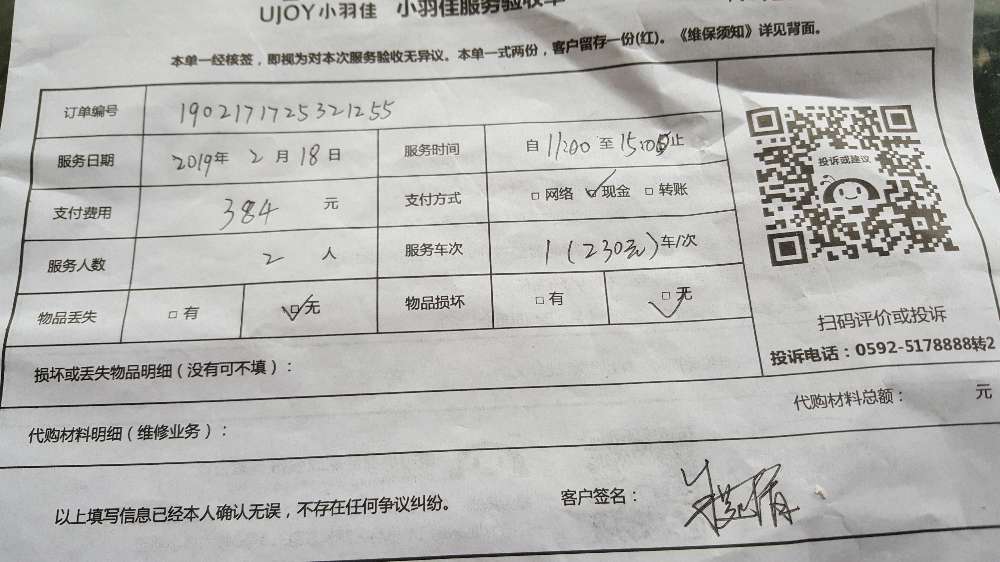 UJOY小羽佳 小羽佳服务验收单
本单一经核签，即视为对本次服务验收无异议。本单一式两份，客户留存一份(红)。《维保须知》详见背面。
订单编号 1902171725321255
服务日期 2019年 2月 18日 服务时间 自 11:00 至 15:00止
支付费用 384 元 支付方式 □网络 ☑现金 □转账
服务人数 2 人 服务车次 1（230元）车/次
物品丢失 □有 ☑无 物品损坏 □有 ☑无
投诉或建议
扫码评价或投诉
投诉电话：0592-5178888转2
损坏或丢失物品明细（没有可不填）：
代购材料明细（维修业务）： 代购材料总额： 元
以上填写信息已经本人确认无误，不存在任何争议纠纷。 客户签名：